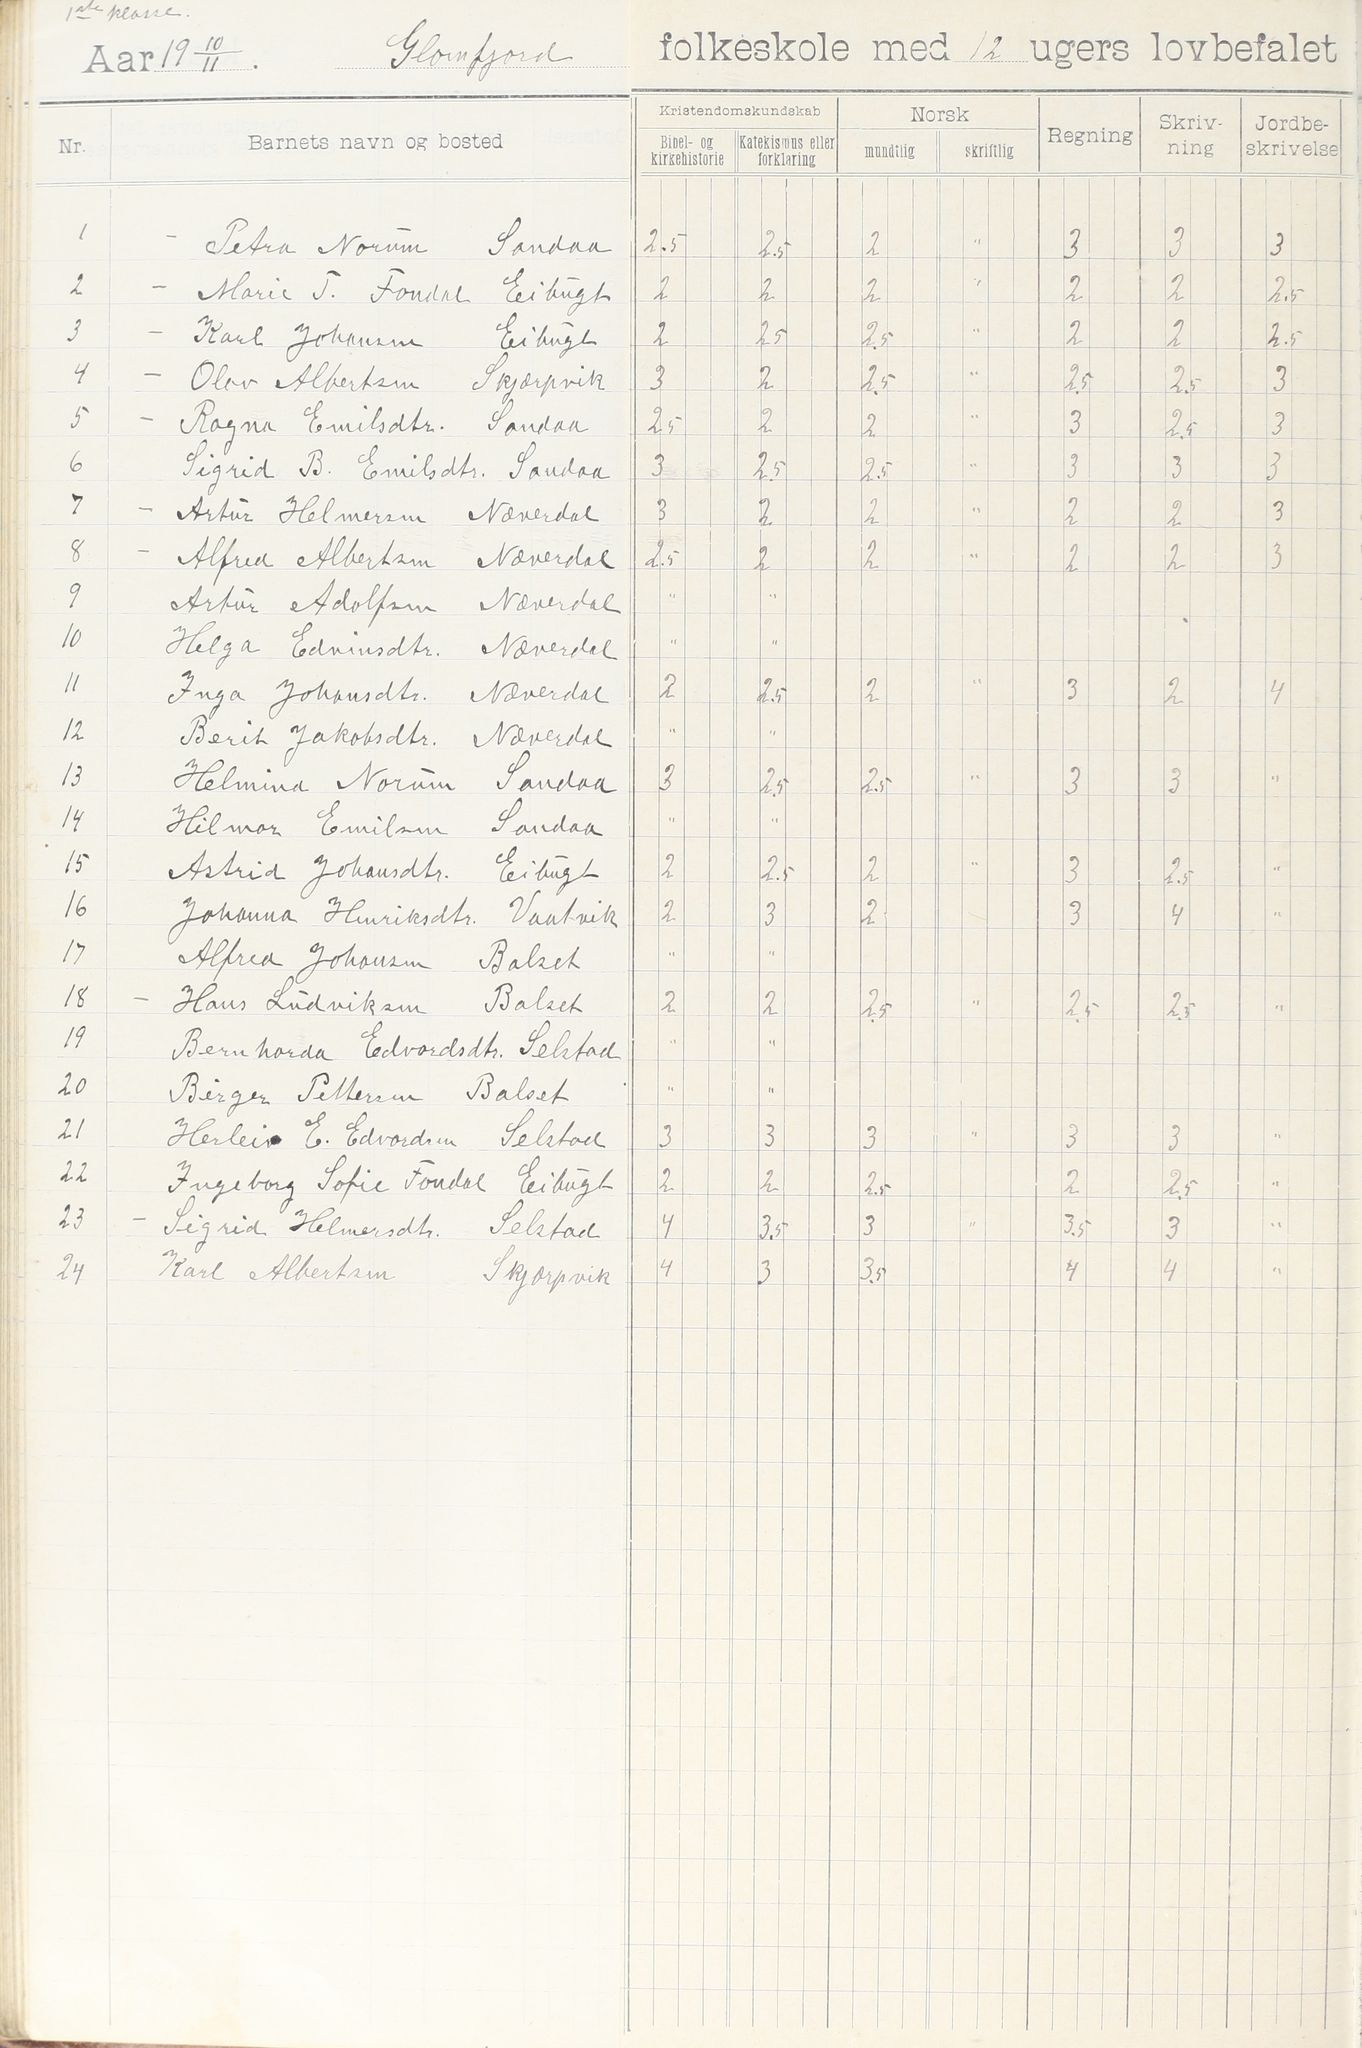 1ste klasse.
Aar 19 10/11. Glomfjord folkeskole med 12 ugers lovbefalet
Kristendomskundskab Norsk Regning Skriv-ning Jordbe-skrivelse
Nr. Barnets navn og bosted Bibel- og kirkehistorie Katekismus eller forklaring mundtlig skriftlig
1 - Petra Norŭm Sandaa 2.5 2.5 2 " 3 3 3
2 - Marie T. Fondal Eibŭgt 2 2 2 " 2 2 2.5
3 - Karl Johansen Eibŭgt 2 2.5 2.5 " 2 2 2.5
4 - Olav Albertsen Skjærpvik 3 2 2.5 " 2.5 2.5 3
5 - Ragna Emilsdtr. Sandaa 2.5 2 2 " 3 2.5 3
6 Sigrid B. Emilsdtr. Sandaa 3 2.5 2.5 " 3 3 3
7 - Artŭr Helmersen Næverdal 3 2 2 " 2 2 3
8 - Alfred Albertsen Næverdal 2.5 2 2 " 2 2 3
9 Artŭr Adolfsen Næverdal " "
10 Helga Edvinsdtr. Næverdal " "
11 Inga Johansdtr. Næverdal 2 2.5 2 " 3 2 4
12 Berit Jakobsdtr. Næverdal " "
13 Helmina Norŭm Sandaa 3 2.5 2.5 " 3 3 "
14 Hilmar Emilsen Sandaa " "
15 Astrid Johansdtr. Eibŭgt 2 2.5 2 " 3 2.5 "
16 Johanna Henriksdtr. Vaatvik 2 3 2 3 4 "
17 Alfred Johansen Balset " "
18 - Hans Lŭdviksen Balset 2 2 2.5 " 2.5 2.5 "
19 Bernharda Edvardsdtr. Selstad " "
20 Birger Pettersen Balset " "
21 Herleiv E. Edvardsen Selstad 3 3 3 " 3 3 "
22 Ingeborg Sofie Fondal Eibŭgt 2 2 2.5 2 2.5 "
23 - Sigrid Helmersdtr. Selstad 4 3.5 3 " 3.5 3 "
24 Karl Albertsen Skjærpvik 4 3 3.5 4 4 "